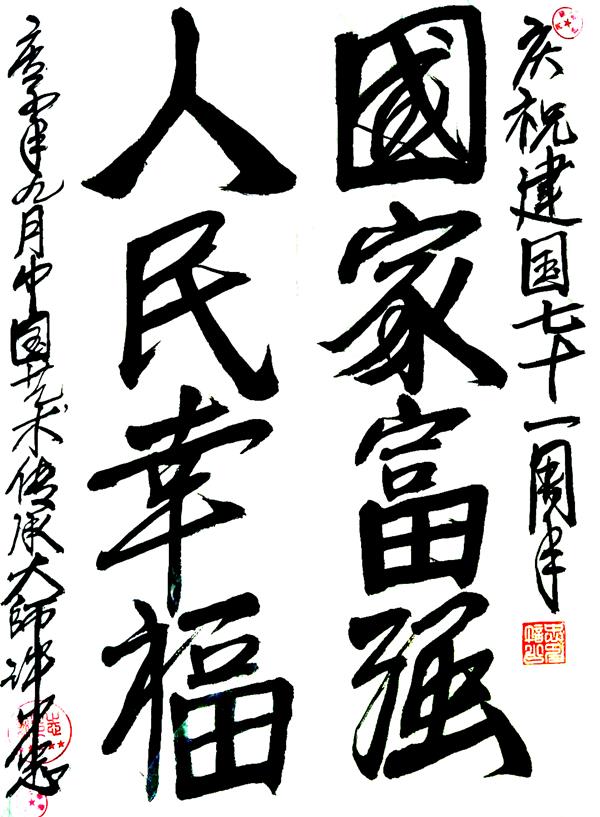 庆祝建国七十一周年
國家富强
人民幸福
庚子年九月中国艺术传承大师许中忠